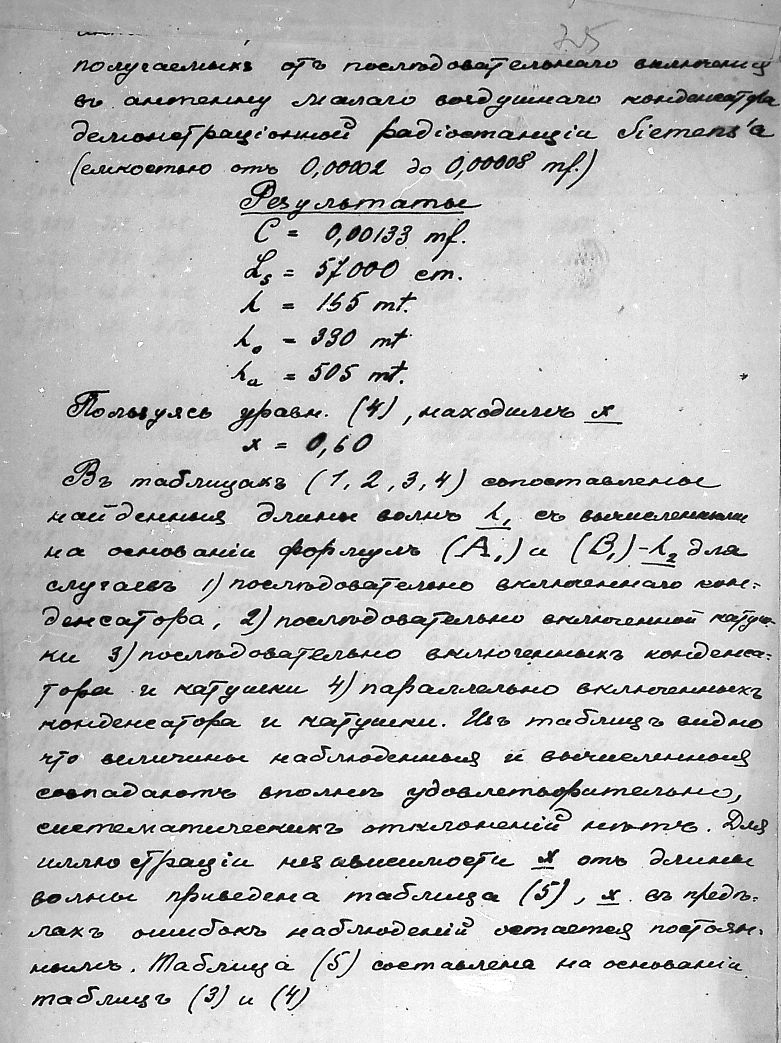 75
получаемыхъ отъ послѣдовательнаго включенія
въ антенну малаго воздушнаго конденсатора
демонстраціонной радіостанціи Siemens'a
(емкостью отъ 0,00002 до 0,00008 mf.)
Результаты
C = 0,00133 mf.
Ls = 57000 cm.
λ = 155 mt.
λ₀ = 330 mt
λa = 505 mt.
Пользуясь уравн. (4), находимъ x
x = 0,60
Въ таблицахъ (1, 2, 3, 4) сопоставлены
найденныя длины волнъ λ₁ съ вычисленными
на основаніи формулъ (A₁) и (B₁) - λ₂ для
случаевъ 1) послѣдовательно включеннаго кон-
денсатора, 2) послѣдовательно включенной катуш-
ки 3) послѣдовательно включенныхъ конденса-
тора и катушки 4) параллельно включенныхъ
конденсатора и катушки. Изъ таблицъ видно
что величины наблюденныя и вычисленныя
совпадаютъ вполнѣ удовлетворительно,
систематическихъ отклоненій нѣтъ. Для
иллюстраціи независимости x отъ длины
волны приведена таблица (5), x въ предѣ-
лахъ ошибокъ наблюденій остается постоян-
нымъ. Таблица (5) составлена на основаніи
таблицъ (3) и (4)